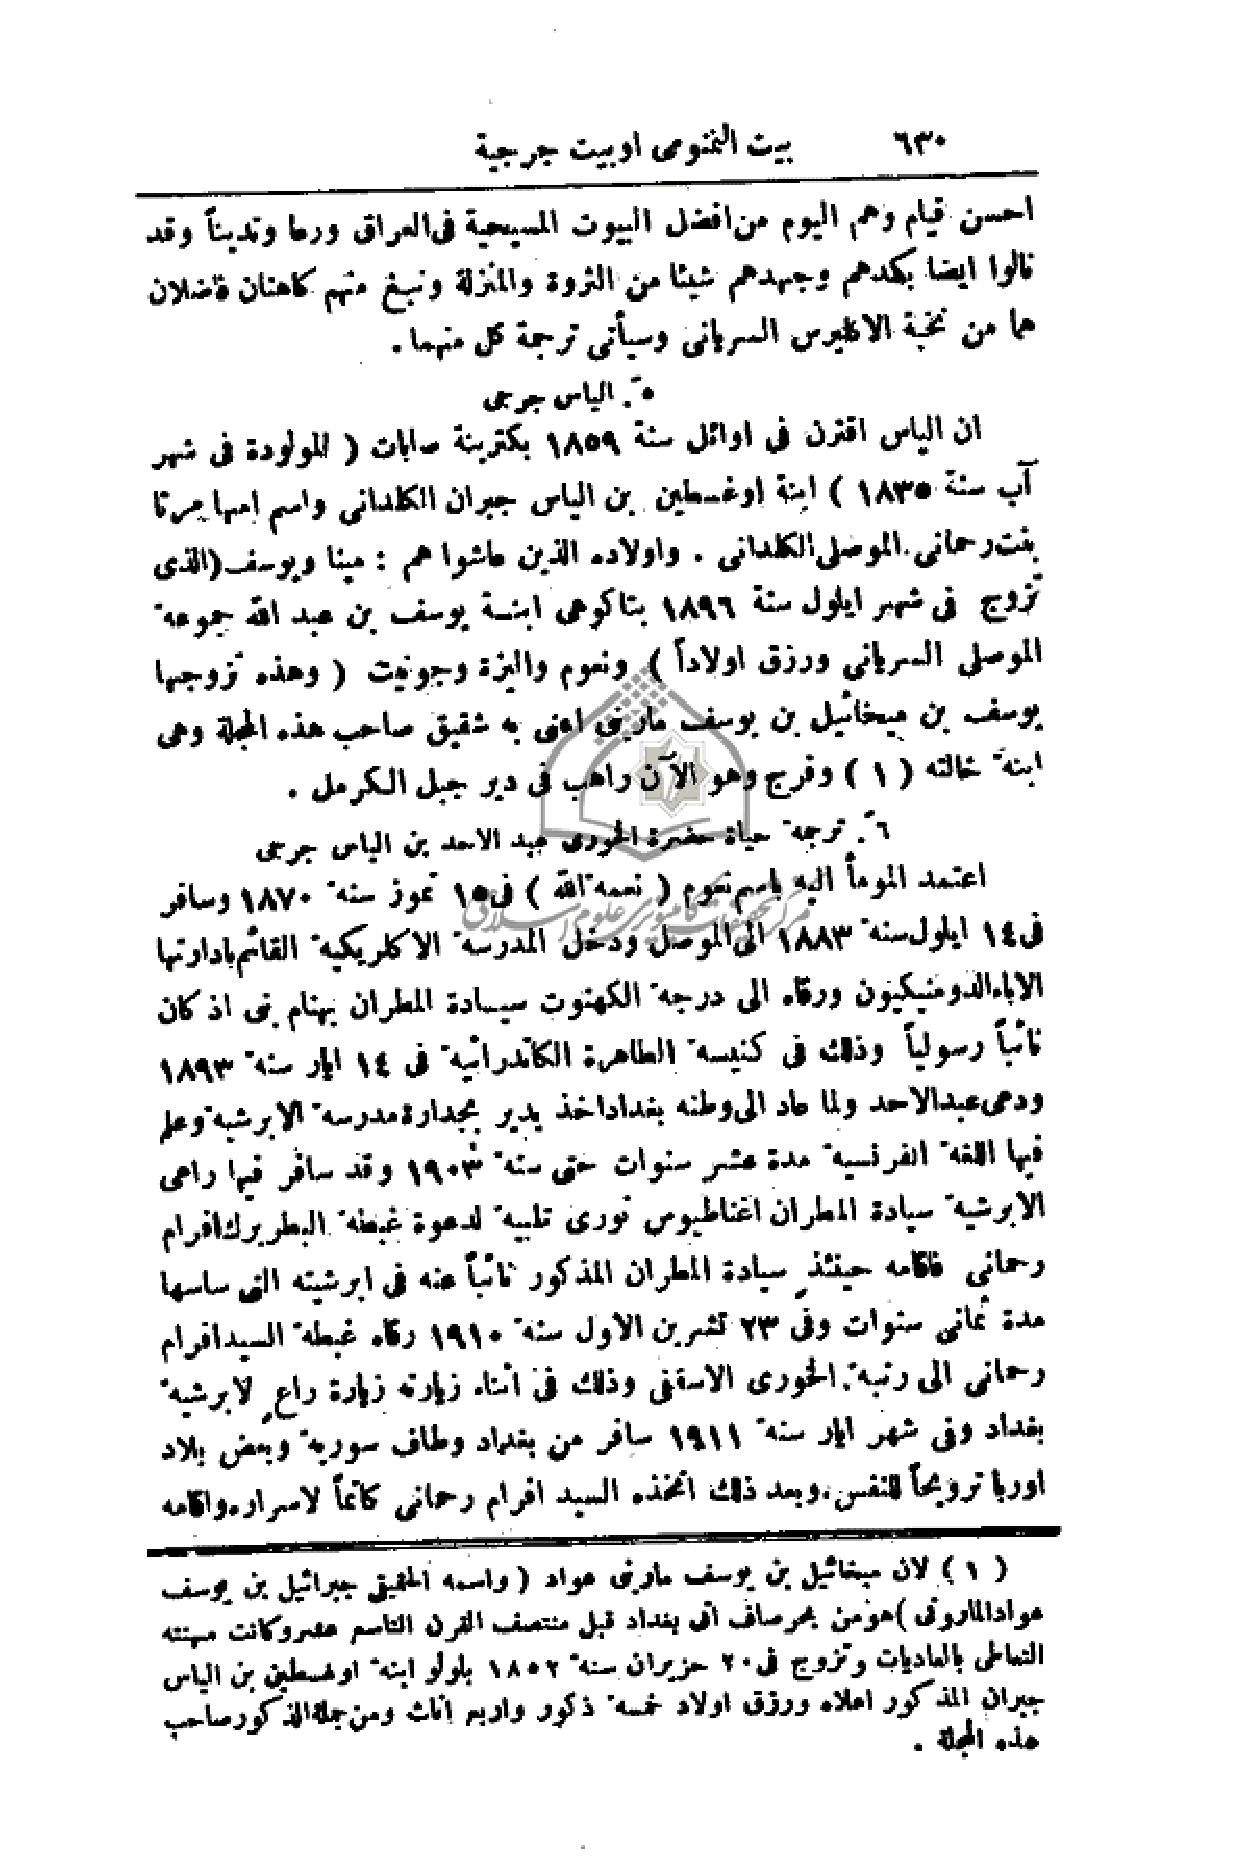 ٦٣٠ بيت الننومى اوبيت جرجية
احسن قيام وهم اليوم من افضل البيوت المسيحية فى العراق ورعا وتديناً وقد
نالوا ايضا بكدهم وجهدهم شيئا من الثروة والمنزلة ونبغ منهم كاهنان فاضلان
هما من نخبة الاكليرس السريانى وسيأتى ترجمة كل منهما .
٥ً. الياس جرجى
ان الياس اقترن فى اوائل سنة ١٨٥٩ بكترينة صابات ( المولودة فى شهر
آب سنة ١٨٣٥ ) ابنة اوغسطين بن الياس جبران الكلدانى واسم امها مرتا
بنت رحمانى الموصلى الكلدانى . واولاده الذين عاشوا هم : مينا ويوسف (الذى
تزوج فى شهر ايلول سنة ١٨٩٦ بتاكوهى ابنــة يوسف بن عبد الله جموعة
الموصلى السريانى ورزق اولاداً ) ونعوم واليزة وجونيت ( وهذه تزوجها
يوسف بن ميخائيل بن يوسف مارينى اعنى به شقيق صاحب هذه المجلة وهى
ابنة خالته ( ١ ) وفرج وهو الآن راهب فى دير جبل الكرمل .
٦ً. ترجمة حياة حضرة الخورى عبد الاحد بن الياس جرجى
اعتمد المومأ اليه باسم نعوم ( نعمة الله ) فى ١٥ تموز سنة ١٨٧٠ وسافر
فى ١٤ ايلول سنة ١٨٨٣ الى الموصل ودخل المدرسة الاكلريكية القائم بادارتها
الاباء الدومنيكيون ورقاه الى درجة الكهنوت سيــادة المطران بهنام بنى اذ كان
نائباً رسولياً وذلك فى كنيسة الطاهرة الكاتدرائية فى ١٤ ايار سنة ١٨٩٣
ودعى عبد الاحد ولما عاد الى وطنه بغداد اخذ يدير بجدارة مدرسة الابرشية وعلم
فيها اللغة الفرنسية مدة عشر سنوات حتى سنة ١٩٠٣ وقد سافر فيها راعى
الابرشية سيادة المطران اغناطيوس نورى تلبية لدعوة غبطة البطريرك افرام
رحمانى فاقامه حينئذٍ سيادة المطران المذكور نائباً عنه فى ابرشيته التى ساسها
مدة ثمانى سنوات وفى ٢٣ تشرين الاول سنة ١٩١٠ رقاه غبطة السيد افرام
رحمانى الى رتبة الخورى الاسقفى وذلك فى اثناء زيارته زيارة راعٍ لابرشية
بغداد وفى شهر ايار سنة ١٩١١ سافر من بغداد وطاف سورية وبعض بلاد
اوربا ترويحاً للنفس . وبعد ذلك اتخذه السيد افرام رحمانى كاتماً لاسراره واقامه
( ١ ) لان ميخائيل بن يوسف مارينى عواد ( واسمه الحقيقى جبرائيل بن يوسف
عواد المارونى ) هو من بحرصاف اتى بغداد قبل منتصف القرن التاسع عشر وكانت مهنته
التعاطى بالعاديات وتزوج فى ٢٠ حزيران سنة ١٨٥٢ بلولو ابنة اوغسطين بن الياس
جبران المذكور اعلاه ورزق اولاد خمسة ذكور واربع اناث ومن جملة الذكور صاحب
هذه المجلة .
مركز تحقيقات كامپيوترى علوم اسلامى